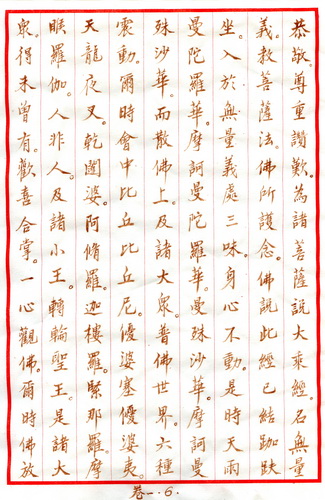 恭敬。尊重讚歎。為諸菩薩說大乘經。名無量
義。教菩薩法。佛所護念。佛說此經已。結跏趺
坐。入於無量義處三昧。身心不動。是時天雨
曼陀羅華。摩訶曼陀羅華。曼殊沙華。摩訶曼
殊沙華。而散佛上。及諸大眾。普佛世界。六種
震動。爾時會中比丘比丘尼。優婆塞優婆夷。
天龍夜叉。乾闥婆。阿脩羅。迦樓羅。緊那羅。摩
睺羅伽。人非人。及諸小王。轉輪聖王。是諸大
眾。得未曾有。歡喜合掌。一心觀佛。爾時佛放
卷一.6.